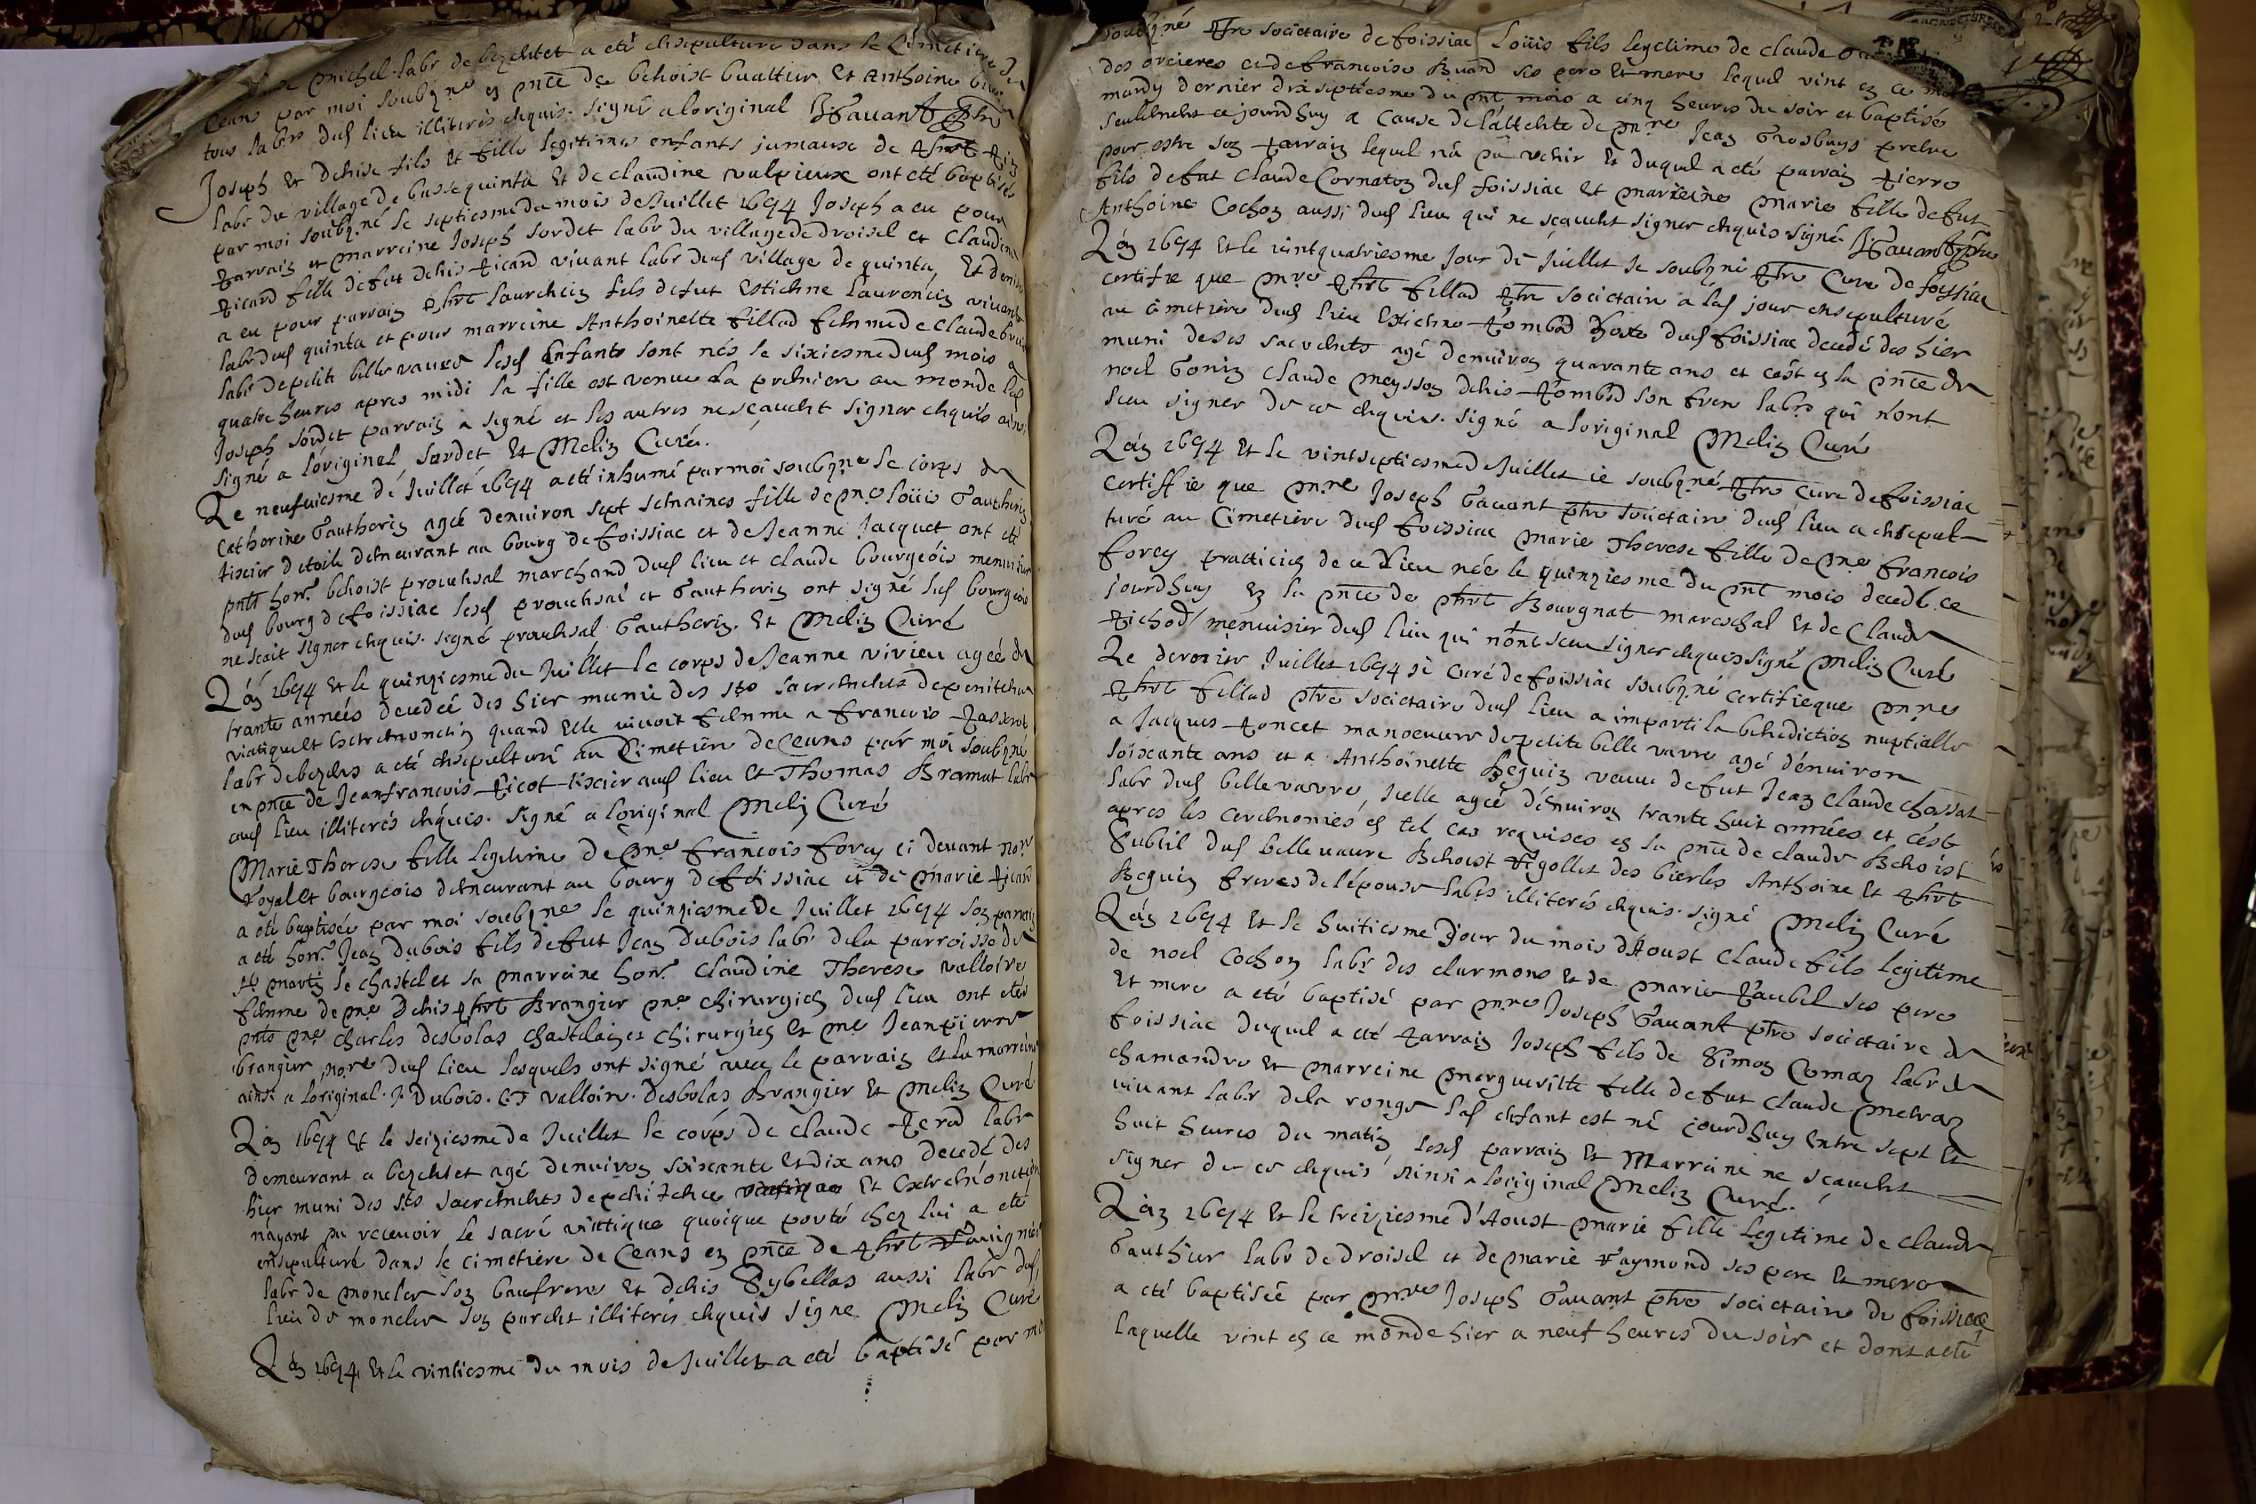 michel labr de bezentet a eté ensepulturé dans le Cimetiere de
Ceans par moi soubzne en pnce de benoist buattier Et Anthoine
tous labrs dud lieu illiterés enquis. signé a loriginal J Gavant ptre
Joseph Et denise fils Et fille legitimes enfants jumaux de phrt
labr du village de basse quinta Et de claudine vulpieux ont eté baptisés
par moi soubzné le septiesme du mois de Juillet 1694 Joseph a eu pour
parrain et marraine Joseph sordet labr du village de droisel et Claudine
ricard fille de fut denis ricard vivant labr dud village de quinta, Et denise
a eu pour parrain phrt laurencin fils de fut Estienne laurencin vivant
labr dud quinta et pour marreine Anthoinette fillod femme de Claude
labr de petite belle vavre lesd Enfants sont nés le sixiesme dud mois a
quatre heures apres midi la fille est venue la premiere au monde led
Joseph sordet parrain a signé et les autres ne scauent signer enquis ainsi
signé a loriginal, Sordet Et Melin Curé.
Le neufuiesme de Juillet 1694 a eté inhumé par moi soubzne le corps de
Catherine Gautherin agée denuiron sept semaines fille de me loüis Gautherin
tixier de toile demeurant au bourg de foissiac et de Jeanne Jacquet ont eté
pnts honr. benoist prouensal marchand dud lieu et claude bourgeois menuisier
dud bourg de foissiac lesd prouensal et Gautherin ont signé led bourgeois
ne scait signer enquis. signé prouensal Gautherin. Et Melin Curé
L'an 1694 Et le quinziesme de Juillet le corps de Jeanne vivieu agée de
trante années decedée des hier munie des sts sacrements de penitence
viatique Et Extremonction quand Elle vivoit femme a francois
labr de bezentet a eté ensepulturé au Cimetiere de Ceans par moi soubzné
en pnce de Jean francois ricot tixier aud lieu Et Thomas Bramat labr
aud lieu illiterés enquis. signé a loriginal Melin Curé
Marie Therese fille legitime de me francois forey ci devant nore
royal Et bourgeois demeurant au bourg de foissiac et de marie ricard
a eté baptisée par moi soubzne le quinziesme de Juillet 1694 son parrain
a eté honr. Jean Dubois fils de fut Jean Dubois labr de la parroisse de
st martin le chastel et sa marreine honr. Claudine Therese valloire
femme de me denis phrt Brangier me chirurgien dud lieu ont eté
pnts me charles desbolas chastelain et chirurgien Et me Jean pierre
brangier nore dud lieu lesquels ont signé auec le parrain Et la marreine
ainsi a loriginal. J. Dubois. C.T valloire. Desbolas Brangier Et Melin Curé
L'an 1694 Et le seiziesme de Juillet le corps de claude labr
demeurant a bezentet agé denuiron soixante Et dix ans decedé des
hier muni des sts sacrements de penitence viatique Et Extremonction
n'ayant pu recevoir le sacré viattique quoique porté chez lui a eté
ensepulturé dans le cimetiere de Ceans en pnce de phrt
labr de moncler son beaufrere Et denis Sybellas aussi labr dud
lieu de moncler son parent illiterés enquis signe Melin Curé
L'an 1694 Et le vintiesme du mois de Juillet a eté baptisé par moi
soubzné ptre societaire de foissiac Loüis fils legitime de claude
des orcieres et de francoise Buand ses pere Et mere lequel vint en ce monde
mardy dernier dix septiesme du pnt mois a cinq heures du soir et baptisé
seulement ce jourdhuy a cause de l'attente de mre Jean Grosbuys prebre
pour estre son parrain lequel n'a pu venir Et duquel a eté parrain pierre
fils de fut claude Cornaton dud foissiac Et marreine marie fille de fut
Anthoine Cochon aussi dud lieu qui ne scauent signer enquis signé. J Gavant ptre
L'an 1694 Et le vintquatriesme Jour de Juillet Je soubzné ptre Cure de foissiac
certifie que mre phrt fillod ptre societaire a led jour ensepulturé
au cimetiere dud lieu Estienne hoste dud foissiac decedé des hier
muni de ses sacrements agé denuiron quarante ans et c'est en la pnce de
noel Gonin claude meysson denis son frere labrs qui n'ont
sceu signer de ce enquis. signé a loriginal Melin Curé
L'an 1694 Et le vintseptiesme de Juillet je soubzné ptre cure de foissiac
certiffie que mre Joseph Gauant ptre societaire dud lieu a ensepul-
turé au Cimetiere dud foissiac marie Therese fille de me francois
forey practicien de ce lieu née le quinziesme du pnt mois decedé ce
jourdhuy en la pnce de phrt Bourgnat mareschal Et de Claude
menuisier dud lieu qui n'ont sceu signer enquis signé Melin Curé
Le dernier Juillet 1694 je curé de foissiac soubzné certifie que mre
phrt fillod ptre societaire dud lieu a imparti la benediction nuptialle
a Jacques poncet manoeuure de petite belle vavre agé d'enuiron
soixante ans et a Anthoinette Beguin veuue de fut Jean Claude Chassat
labr dud belle vavre, icelle agée d'enuiron trante huit années et c'est
apres les ceremonies en tel cas requises en la pnce de claude Benoist
Subtil dud belle vavre Benoist rigollet des bierles Anthoine Et phrt
Beguin freres de l'épouse labrs illiterés enquis. signé Melin Curé
L'an 1694 Et le huitiesme Jour du mois d'Aoust Claude fils legitime
de noel Cochon labr des clermons Et de marie ses pere
Et mere a eté baptisé par mre Joseph Gavant ptre societaire de
foissiac duquel a eté parrain Joseph fils de Simon Coman labr de
chamandre Et marreine margueritte fille de fut claude
vivant labr de la ronge led enfant est né jourdhuy entre sept Et
huit heures du matin, lesd parrain Et Marreine ne scauent
signer de ce enquis ainsi a loriginal Melin Curé.
L'an 1694 Et le treiziesme d'Aoust marie fille legitime de claude
Gauthier labr de droisel et de marie raymond ses pere Et mere
a eté baptisée par mre Joseph Gauant ptre societaire de foissiac
laquelle vint en ce monde hier a neuf heures du soir et dont a eté